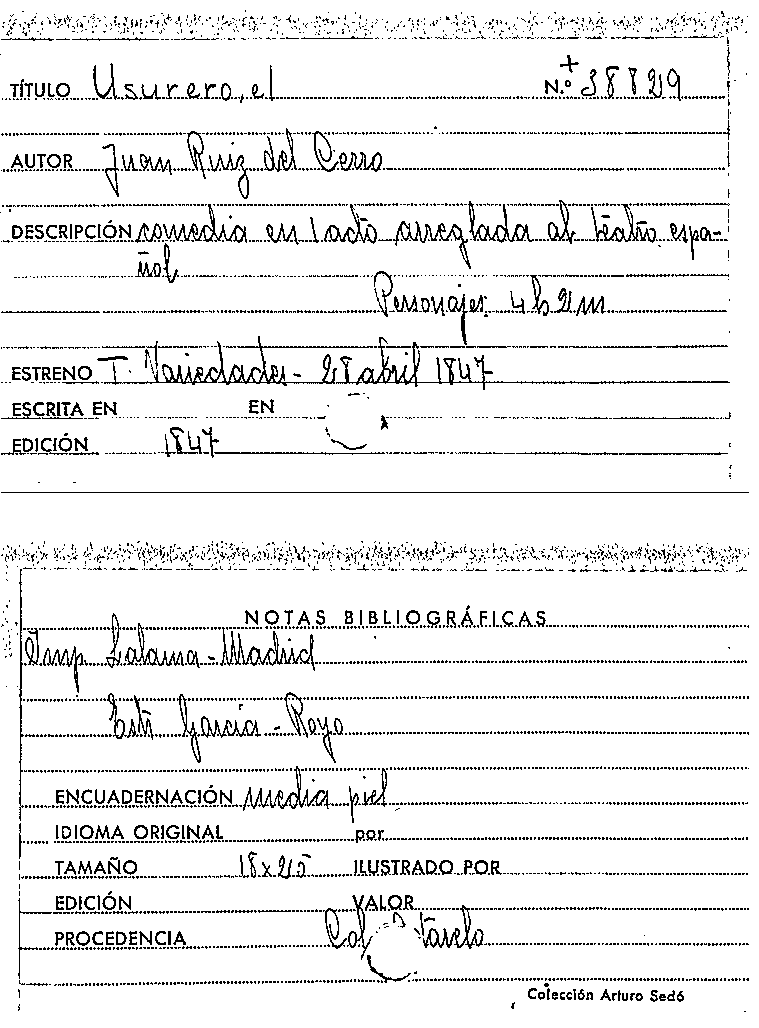 TÍTULO Usurero, el N.º + 38829
AUTOR Juan Ruiz del Cerro
DESCRIPCIÓN comedia en 1 acto arreglada al teatro espa-
ñol
Personajes: 4 h 2 m
ESTRENO T. Variedades - 28 abril 1847
ESCRITA EN EN
EDICIÓN 1847
NOTAS BIBLIOGRÁFICAS
Imp Lalama - Madrid
García - Royo
ENCUADERNACIÓN media piel
IDIOMA ORIGINAL por
TAMAÑO 18 x 25 ILUSTRADO POR
EDICIÓN VALOR
PROCEDENCIA Col
Colección Arturo Sedó